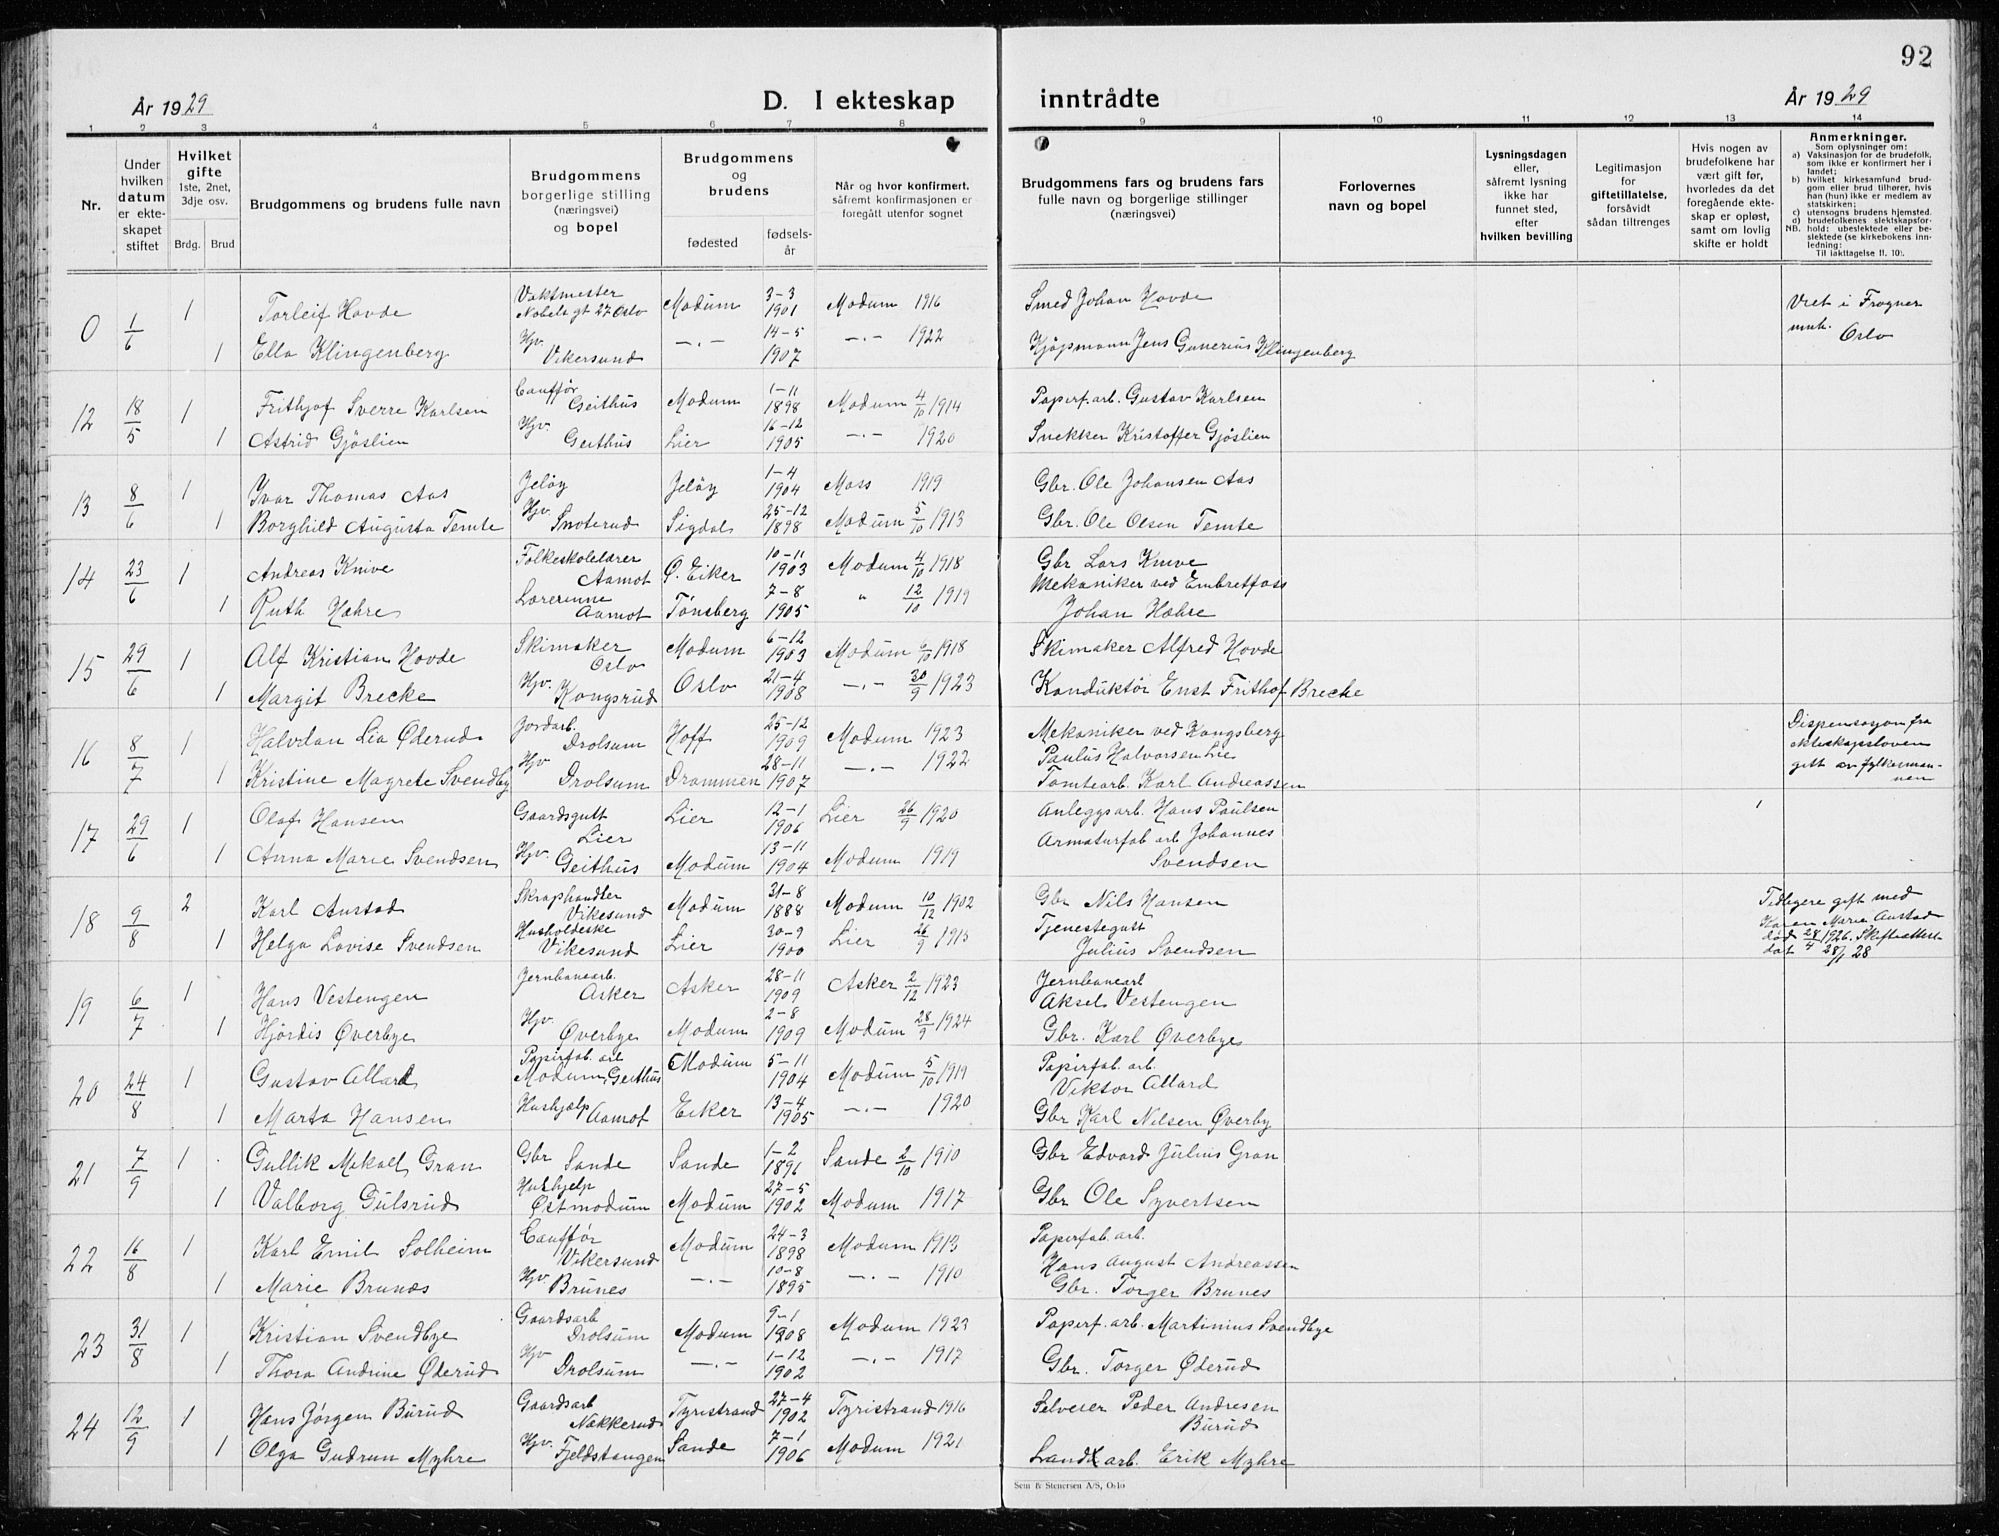 92
År 1929
D. I ekteskap
inntrådte
År 1929
1 2 3 4 5 6 7 8 9 10 11 12 13 14
Nr.
Under hvilken datum er ekteskapet stiftet
Hvilket gifte
1ste, 2net, 3dje osv.
Brdg. Brud
Brudgommens og brudens fulle navn
Brudgommens borgerlige stilling (næringsvei) og bopel
Brudgommens og brudens
fødested
fødsels-år
Når og hvor konfirmert, såfremt konfirmasjonen er foregått utenfor sognet
Brudgommens fars og brudens fars fulle navn og borgerlige stillinger (næringsvei)
Forlovernes navn og bopel
Lysningsdagen eller, såfremt lysning ikke har funnet sted, efter hvilken bevilling
Legitimasjon for giftetillatelse, forsåvidt sådan tiltrenges
Hvis nogen av brudefolkene har vært gift før, hvorledes da det foregående ekteskap er opløst, samt om lovlig skifte er holdt
Anmerkninger.
Som oplysninger om:
a) Vaksinasjon for de brudefolk, som ikke er konfirmert her i landet;
b) hvilket kirkesamfund brudgom eller brud tilhører, hvis han (hun) ikke er medlem av statskirken;
c) utensogns brudens hjemsted.
d) brudefolkenes slektskapsforhold: ubeslektede eller beslektede (se kirkebokens innledning:
NB.
Til iakttagelse II. 10).
0 1/6 1 Torleif Hovde Vaktmester Nobels gt 27 Oslo Modum 3-3 1901 Modum 1916 Smed Johan Hovde Viet i Frogner menh. Oslo
1 Ella Klingenberg Hjv. Vikersund -.- 14-5 1907 -.- 1922 Kjøpmann Jens Gunerius Klingenberg
12 18/5 1 Frithjof Sverre Karlsen Cauffør Geithus Modum 1-11 1898 Modum 4/10 1914 Papirf. arb. Gustav Karlsen
1 Astrid Gjøslien Hjv. Geithus Lier 16-12 1905 -.- 1920 Snekker Kristoffer Gjøslien
13 8/6 1 Ivar Thomas Aas Jeløy Jeløy 1-4 1904 Moss 1919 Gbr. Ole Johansen Aas
1 Borghild Augusta Temte Hjv. Snoterud Sigdal 25-12 1898 Modum 5/10 1913 Gbr. Ole Olsen Temte
14 23/6 1 Andreas Knive Folkeskolelærer Aamot Ø. Eiker 10-11 1903 Modum 4/10 1918 Gbr Lars Knive
1 Ruth Hæhre Lærerinne Aamot Tønsberg 7-8 1905 " 12/10 1919 Mekaniker ved Embretfoss Johan Hæhre
15 29/6 1 Alf Kristian Hovde Skimaker Oslo Modum 6-12 1903 Modum 6/10 1918 Skimaker Alfred Hovde
1 Margit Brecke Hjv. Kongsrud Oslo 21-4 1908 -.- 30/9 1923 Konduktør Enst Frithof Brecke
16 8/7 1 Halvdan Lia Øderud Jordarb. Drolsum Hoff 25-12 1909 Modum 1923 Mekaniker ved Kongsberg Paulus Halvorsen Lie Dispensasjon fra ekteskapsloven gitt av fylkesmannen
1 Kristine Magrete Svendby Hjv Drolsum Drammen 28-11 1907 -.- 1922 Tomtearb. Karl Andreassen
17 29/6 1 Olaf Hansen Gaardsgutt Lier Lier 12-1 1906 Lier 26/9 1920 Anleggsarb. Hans Paulsen
1 Anna Marie Svendsen Hjv. Geithus Modum 13-11 1904 Modum 1919 Armaturfab arb Johannes Svendsen
18 9/8 2 Karl Austad Skraphandler Vikesund Modum 31-8 1888 Modum 10/12 1902 Gbr Nils Hansen Tidligere gift med Karen Marie Austad død 28/4 1926. Skifteattest dat 28/1 28
1 Helga Lovise Svendsen Husholderske Vikesund Lier 30-9 1900 Lier 26/9 1915 Tjenestegutt Julius Svendsen
19 6/7 1 Hans Vestengen Jernbanearb. Asker Asker 28-11 1909 Asker 2/12 1923 Jernbanearb Aksel Vestengen
1 Hjørdis Øverbye Hjv. Øverbye Modum 2-8 1909 Modum 28/9 1924 Gbr. Karl Øverbye
20 24/8 1 Gustav Allard Papirfab. arb Modum, Geithus Modum 5-11 1904 Modum 5/10 1919 Papirfab. arb. Viktor Allard
1 Marta Hansen Hushjælp Aamot Eiker 13-4 1905 -.- 1920 Gbr Karl Nilsen Øverby
21 7/9 1 Gullik Mikael Gran Gbr Sande Sande 1-2 1896 Sande 2/10 1910 Gbr Edvard Julius Gran
1 Valborg Gulsrud Hushjelp Østmodum Modum 27-5 1902 Modum 1917 Gbr Ole Syvertsen
22 16/8 1 Karl Emil Solheim Cauffør Vikersund Modum 24-3 1898 Modum 1913 Papirfab. arb. Hans August Andreassen
1 Marie Brunes Hjv Brunes -.- 10-8 1895 -.- 1910 Gbr. Torger Brunes
23 31/8 1 Kristian Svendbye Gaardsarb Drolsum Modum 9-1 1908 Modum 1923 Papirf. arb. Martinius Svendbye
1 Thora Andrine Øderud Hjv Drolsum -.- 1-12 1902 -.- 1917 Gbr. Torger Øderud
24 12/9 1 Hans Jørgen Burud Gaardsarb Nakkerud Tyristrand 27-4 1902 Tyristrand 1916 Selveier Peder Andresen Burud
1 Olga Gudrun Myhre Hjv. Fjeldstangen Sande 7-1 1906 Modum 1921 Land arb. Erik Myhre
Sem & Stenersen A/S, Oslo